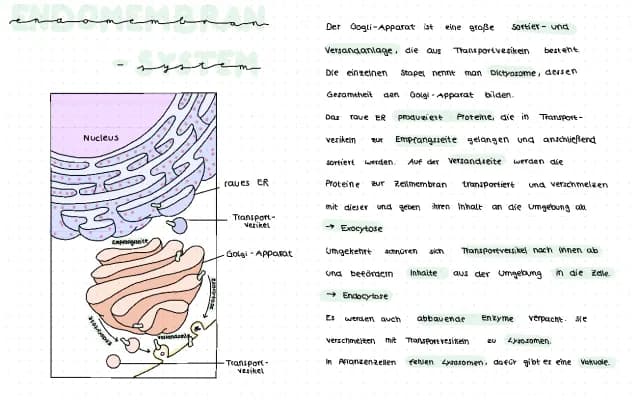 ENDOMEMBRAN
endomembran
- system
Nucleus
raues ER
Transport-
vesikel
Empfangsseite
Golgi-Apparat
Exocytose
Endocytose
Versandseite
Transport-
vesikel
Der Gogli-Apparat ist eine große Sortier- und
Versandanlage, die aus Transportvesikeln besteht
Die einzelnen Stapel nennt man Dictyosome, dessen
Gesamtheit den Golgi-Apparat bilden.
Das raue ER produziert Proteine, die in Transport-
vesikeln zur Empfangsseite gelangen und anschließend
sortiert werden. Auf der Versandseite werden die
Proteine zur Zellmembran transportiert und verschmelzen
mit dieser und geben ihren Inhalt an die Umgebung ab
→ Exocytose
Umgekehrt schnüren sich Transportvesikel nach innen ab
und befördern Inhalte aus der Umgebung in die Zelle.
→ Endocytose
Es werden auch abbauende Enzyme verpackt. Sie
verschmelzen mit Transportvesikeln zu Lysosomen.
In Pflanzenzellen fehlen Lysosomen, dafür gibt es eine Vakuole.